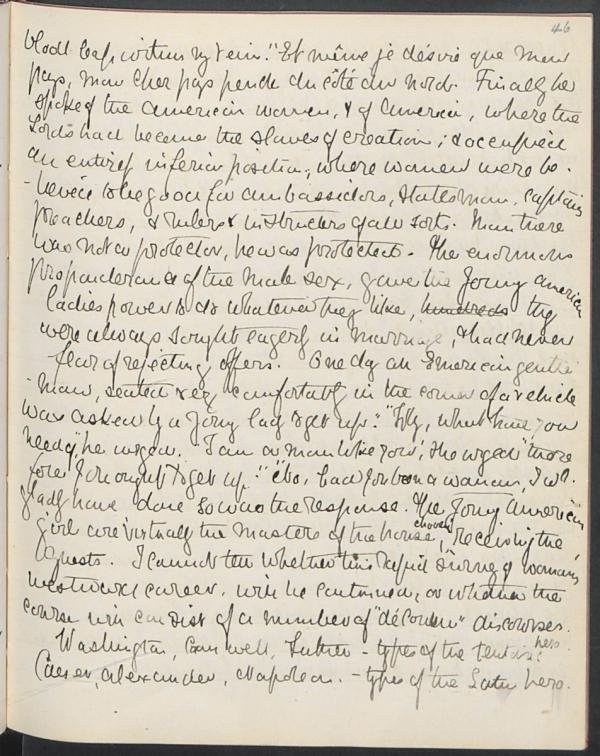 46
blood leap within my vein." Et même je désire que mon
pays, mon cher pays pende du côté du nord. Finally he
spoke of the American women, & of America, where the
Lords had become the slaves of creation; & occupied
an entirely inferior position; where women were be-
-lieved to be good for ambassadors, statesman, captains
preachers, & rulers & instructors of all sorts. Man there
was not a protector, he was protected. The enormous
preponderance of the male sex, gave the young American
ladies power to do whatever they like, hundreds they
were always sought eagerly in marriage, & had never
fear of rejecting offers. One day an American gentle
-man, seated very comfortably in the corner of a vehicle
was asked by a young lady to get up: "Why, what have you
need", he urged. "I am a man like you", she urged "there
fore I ought to get up." " had you been a woman, I wd.
gladly have done so was the response. The young American
girl are virtually the masters of the house, receiving the
guests. I cannot tell whether this rapid of womans
westward career, will be continued, or whether the
course will consist of a number of "décousu" discourses.
Washington, Cromwell, Luther - types of the hero
Caesar, Alexander, Napoleon. - types of the Latin hero.